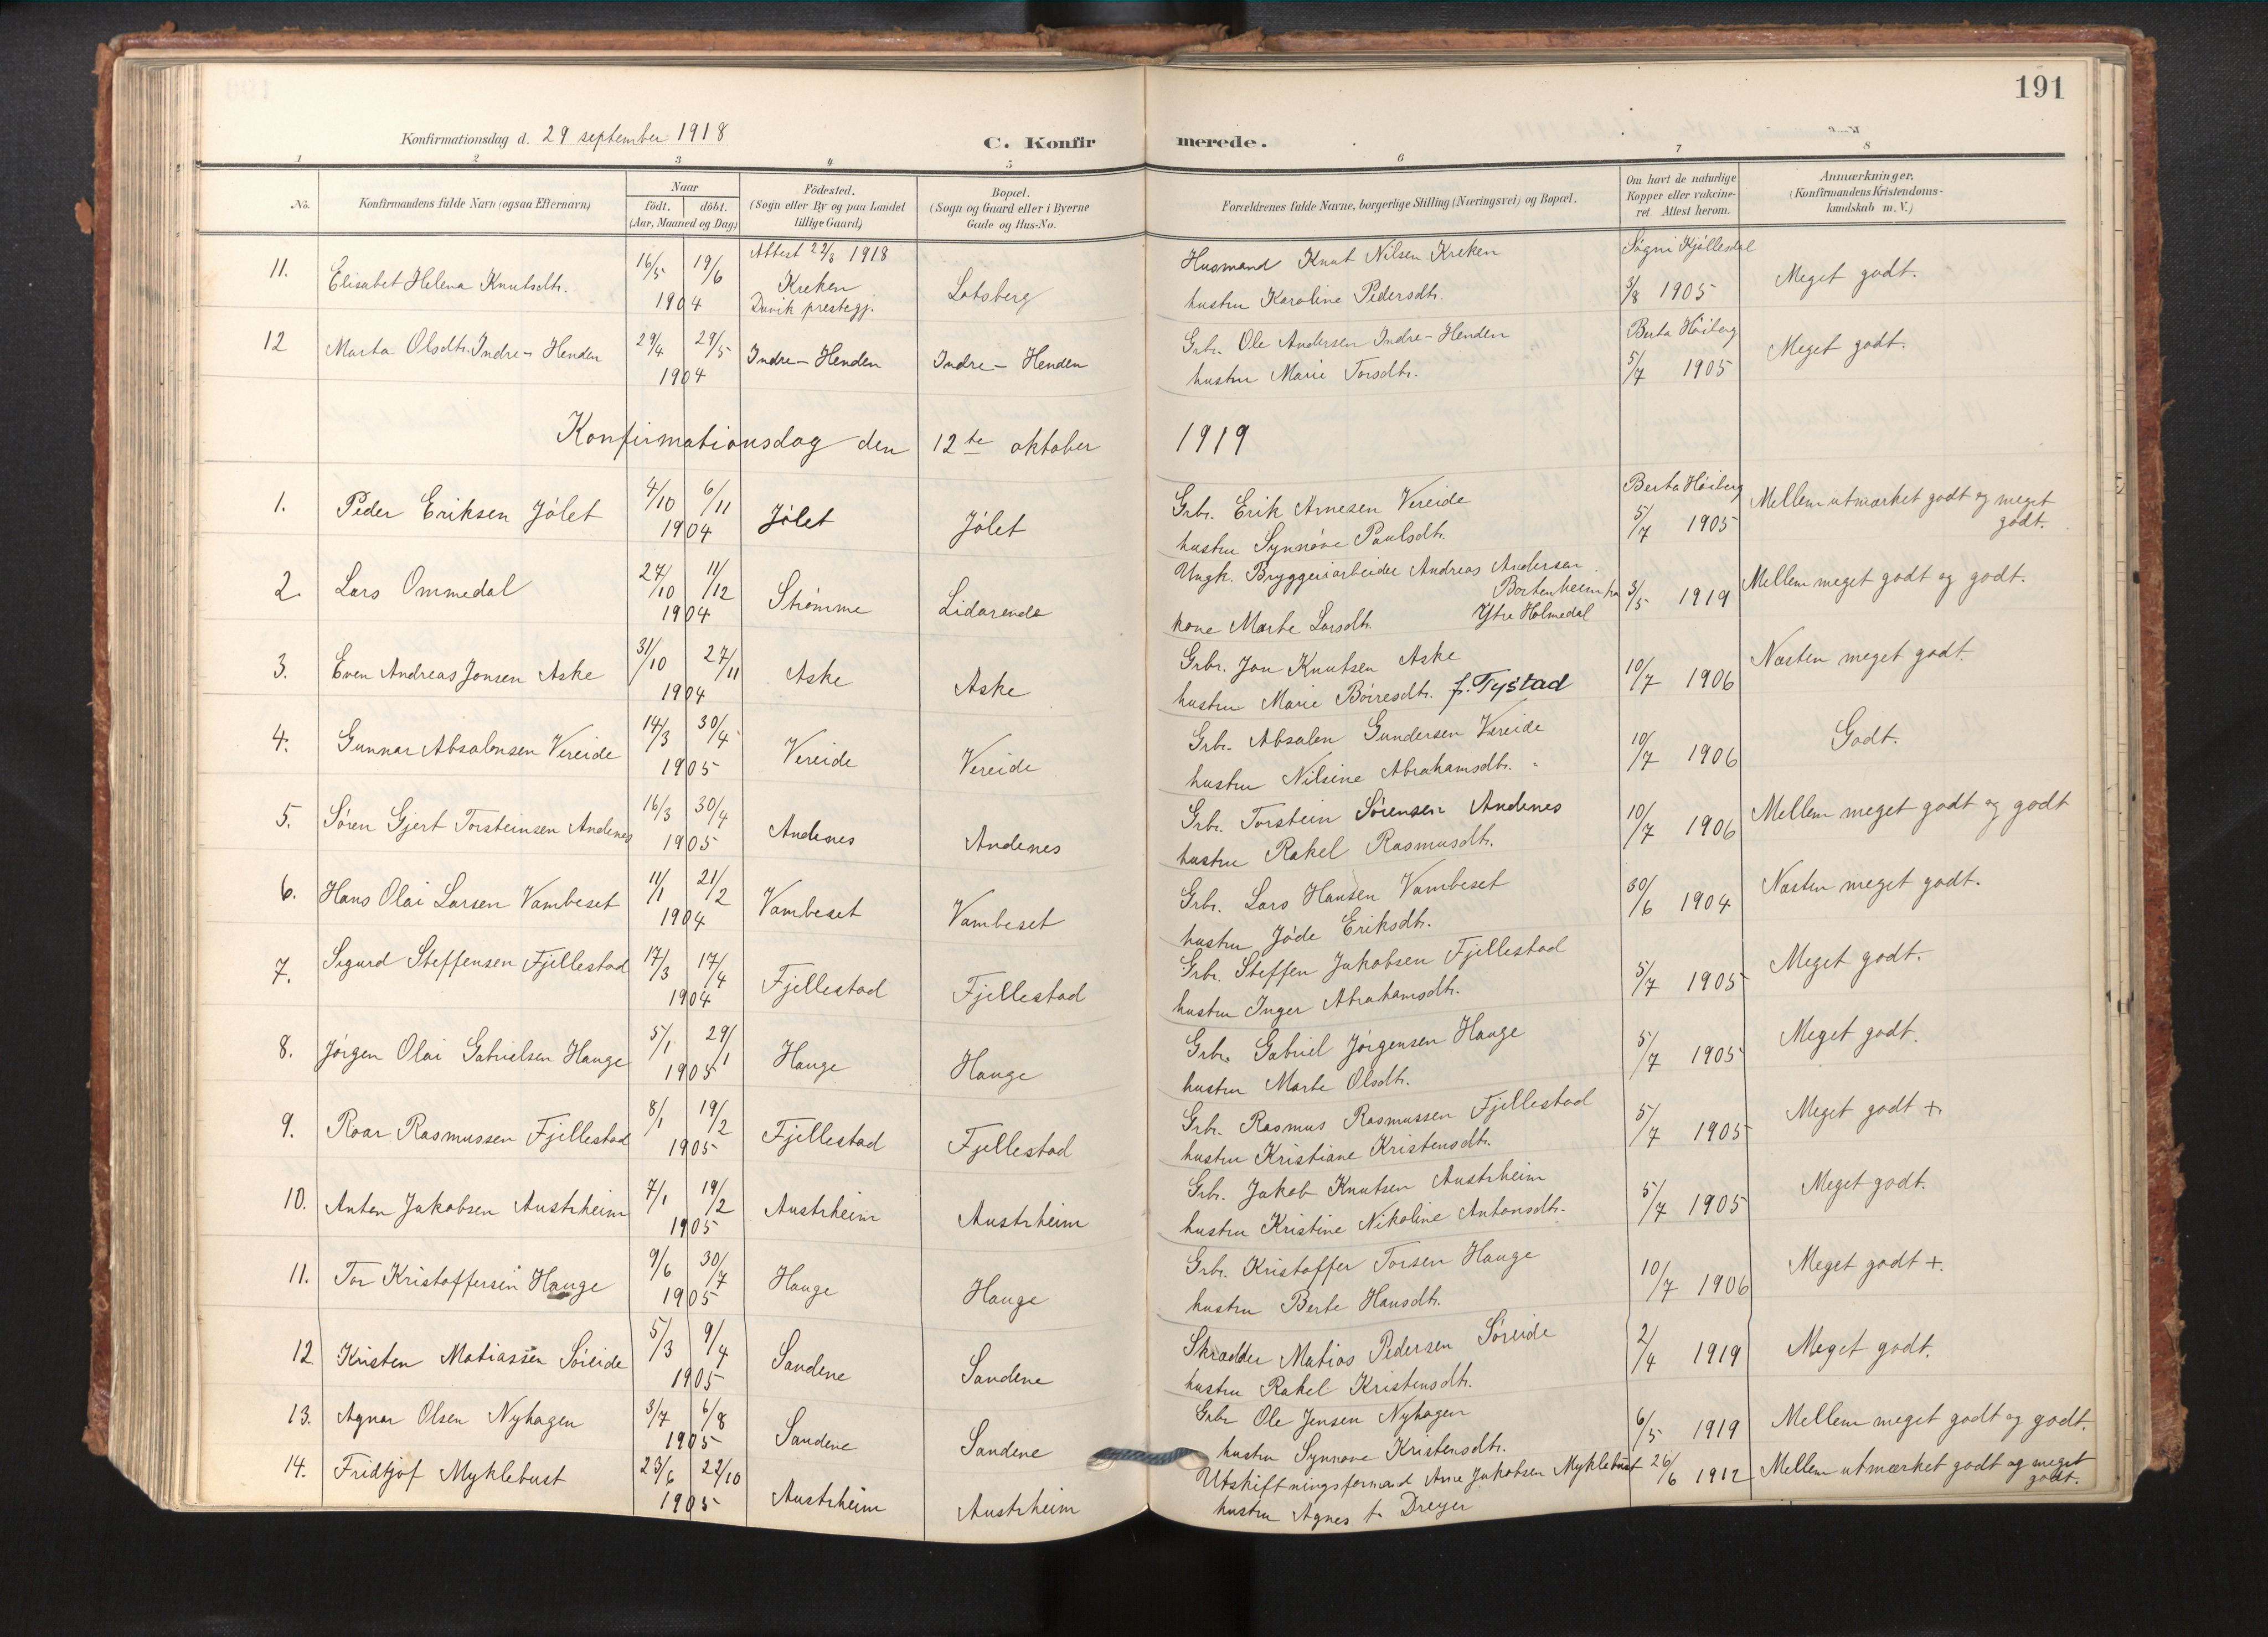 191
Konfirmationsdag d. 29 september 1918
C. Konfirmerede.
1 2 3 4 5 6 7 8
No.
Konfirmandens fulde Navn (ogsaa Efternavn)
Naar
födt. döbt.
(Aar, Maaned og Dag)
Födested.
(Sogn eller By og paa Landet
tillige Gaard)
Bopæl.
(Sogn og Gaard eller i Byerne
Gade og Hus-No.
Forældrenes fulde Navne, borgerlige Stilling (Næringsvei) og Bopæl.
Om havt de naturlige
Kopper eller vakcine-
ret. Attest herom.
Anmærkninger.
(Konfirmandens Kristendoms-
kundskab m. V.)
11. Elisabet Helena Knutsdtr. 16/5 19/6 1904 Attest 22/3 1918 Kreken Davik prestegj. Lotsberg Husmand Knut Nilsen Kreken Søgni Kjøllesdal
hustru Karoline Pedersdtr. 3/8 1905 Meget godt.
12 Marta Olsdtr. Indre-Henden 29/4 29/5 1904 Indre-Henden Indre-Henden Grbr. Ole Andersen Indre-Henden Berta Höiberg
hustru Marie Torsdtr. 5/7 1905 Meget godt.
Konfirmationsdag den 12te oktober 1919
1. Peder Eriksen Jölet 4/10 6/11 1904 Jölet Jölet Grbr. Erik Arnesen Vereide Berta Höiberg
hustru Synnöve Paulsdtr. 5/7 1905 Mellem utmærket godt og meget godt.
2. Lars Ommedal 27/10 11/12 1904 Strømme Lidarende Ungk. Bryggeriarbeider Andreas Andersen
Bortenheim fra Ytre Holmedal
kone Marte Larsdtr. 3/5 1919 Mellem meget godt og godt.
3. Even Andreas Jonsen Aske 31/10 27/11 1904 Aske Aske Grbr. Jon Knutsen Aske
hustru Marie Börresdtr. f. Tystad 10/7 1906 Næsten meget godt.
4. Gunnar Absalonsen Vereide 14/3 30/4 1905 Vereide Vereide Grbr. Absalon Gundersen Vereide
hustru Nilsine Abrahamsdtr. 10/7 1906 Godt.
5. Sören Gjert Torsteinsen Andenes 16/3 30/4 1905 Andenes Andenes Grbr. Torstein Sörensen Andenes
hustru Rakel Rasmusdtr. 10/7 1906 Mellem meget godt og godt
6. Hans Olai Larsen Vambeset 11/1 21/2 1904 Vambeset Vambeset Grbr. Lars Hansen Vambeset
hustru Jöde Eriksdtr. 30/6 1904 Næsten meget godt.
7. Sigurd Steffensen Fjellestad 17/3 17/4 1904 Fjellestad Fjellestad Grbr. Steffen Jakobsen Fjellestad
hustru Inger Abrahamsdtr. 5/7 1905 Meget godt.
8. Jörgen Olai Gabrielsen Hauge 5/1 29/1 1905 Hauge Hauge Grbr. Gabriel Jörgensen Hauge
hustru Marte Olsdtr. 5/7 1905 Meget godt.
9. Roar Rasmussen Fjellestad 8/1 19/2 1905 Fjellestad Fjellestad Grbr. Rasmus Rasmussen Fjellestad
hustru Kristiane Kristensdtr. 5/7 1905 Meget godt +.
10. Anton Jakobsen Austrheim 7/1 19/2 1905 Austrheim Austrheim Grbr. Jakob Knutsen Austrheim
hustru Kristine Nikoline Antonsdtr. 5/7 1905 Meget godt.
11. Tor Kristoffersen Hauge 9/6 30/7 1905 Hauge Hauge Grbr. Kristoffer Torsen Hauge
hustru Berte Hansdtr. 10/7 1906 Meget godt +.
12 Kristen Matiassen Söreide 5/3 9/4 1905 Sandene Sandene Skrædder Matias Pedersen Söreide
hustru Rakel Kristensdtr. 2/4 1919 Meget godt.
13. Agnar Olsen Nyhagen 3/7 6/8 1905 Sandene Sandene Grbr Ole Jensen Nyhagen
hustru Synnøve Kristensdtr. 6/5 1919 Mellem meget godt og godt.
14. Fridtjof Myklebust 23/6 22/10 1905 Austrheim Austrheim Utskiftningsformand Arne Jakobsen Myklebust
hustru Agnes f. Dreyer 26/6 1912 Mellem utmærket godt og meget godt.